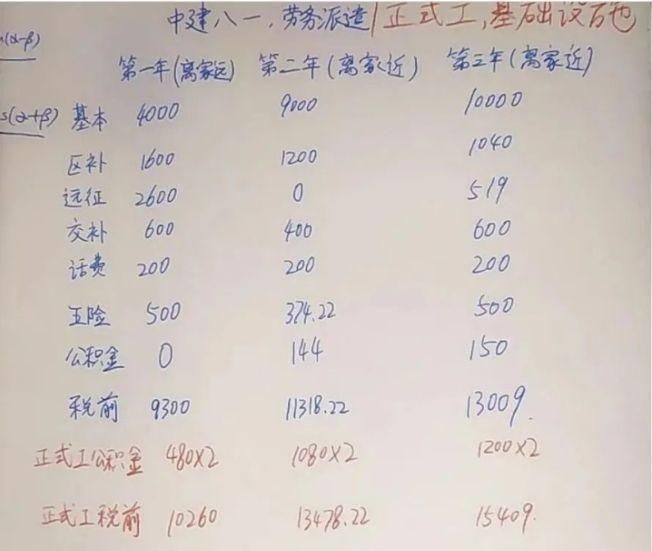 中建八一,劳务派遣/正式工,基础设石也
s(α-β)
第一年(离家远) 第二年(离家近) 第三年(离家近)
s(α+β) 基本 4000 9000 10000
区补 1600 1200 1040
远征 2600 0 519
交补 600 400 600
话费 200 200 200
五险 500 374.22 500
公积金 0 144 150
税前 9300 11318.22 13009.
正式工公积金 480×2 1080×2 1200×2
正式工税前 10260 13478.22 15409.